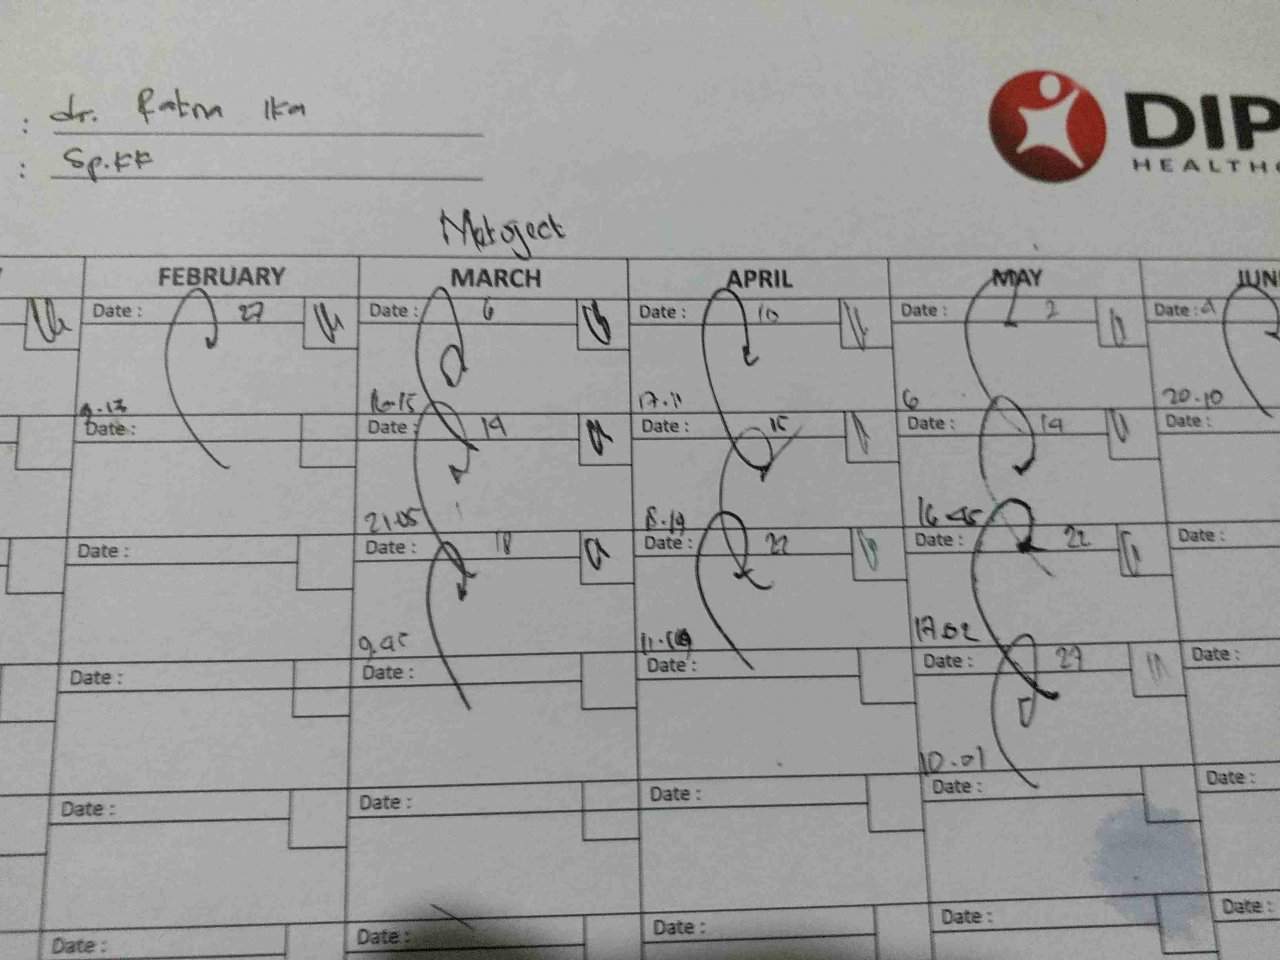 : dr. Ratna Ika
: Sp.KK
DIP
HEALTHC
Motoject
FEBRUARY MARCH APRIL MAY JUN
Date : 27 Date : 6 Date : 10 Date : 2 Date : 4
9.13 16-15 17.11 6 20.10
Date : Date : 14 Date : 15 Date : 14 Date :
21.05 8.19 16.45
Date : Date : 18 Date : 22 Date : 22 Date :
9.45 17.02
Date : Date : Date : Date : 27 Date :
10.01
Date : Date : Date : Date : Date :
Date : Date : Date : Date : Date :